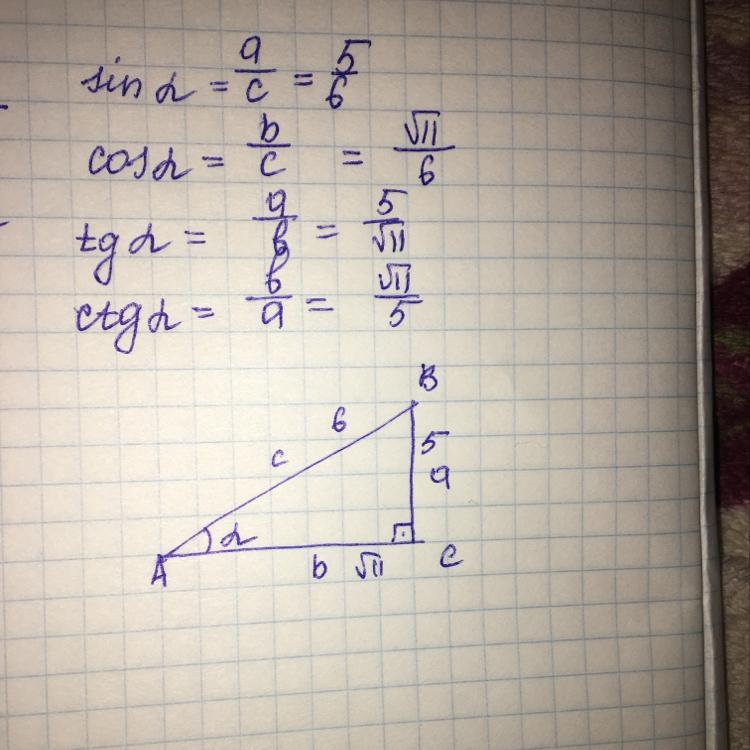 sin α = a/c = 5/6
cos α = b/c = √11/6
tg α = a/b = 5/√11
ctg α = b/a = √11/5
B
6
5
c
a
α
A
b √11 C